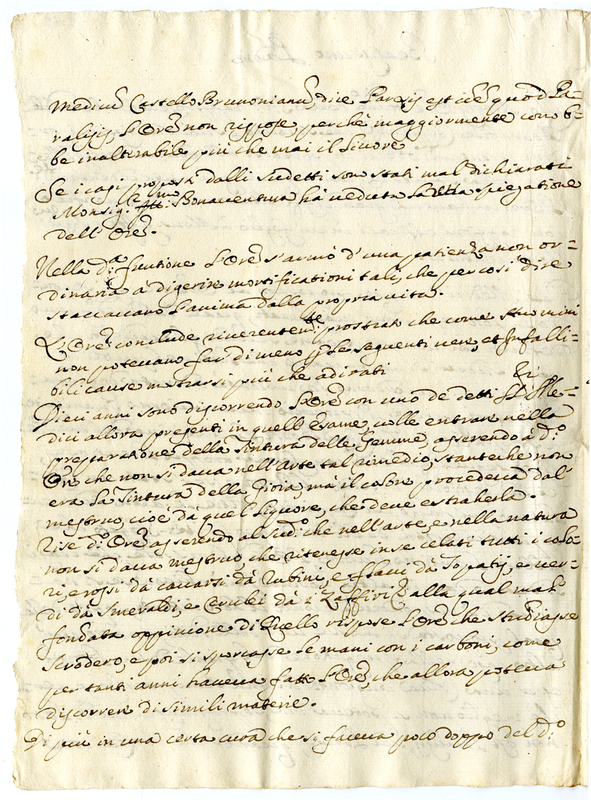 Medicus Castello Brunonianus, dice Paresis est idem quod Pa=
ralysis, l'Ore non rispose, perchè maggiormente conob=
be inalterabile più che mai il livore.
Se i casi proposti dalli sudetti son stati mal dichiarati
Monsig.r Bonaventura hà veduta la spiegatione
dell' Ore.
Nella d.a funtione l'Ore s'armò d'una patienza non or=
dinaria à digerire mortificationi tali, che per così dire
staccavano l'anima dalla propria vita.
L'Ore conclude riverentem.te prostrato che come huomini
non potevano far di meno p le seguenti vere, et Infalli=
bili cause mostrarsi più che adirati
Dieci anni sono discorrendo l'Ore con uno de detti SS.ri Me=
dici allora presenti in quell' esame, volle entrar nella
preparatione della Tintura delle Gemme, asserendo à d.o
Ore che non si dava nell'Arte tal rimedio, stante che non
era la Tintura della Gioia, mà il colore procedeva dal
mestruo, cioè dà quel liquore, che deve estraherla.
Rise d.o Ore asserendo al Sud.o che nell'arte, e nella natura
non si dava mestruo, che ritenesse in se celati tutti i colo=
ri, e rossi dà cavarsi dà Rubini, e flavi dà Topatij, e ver=
di dà Smeraldi, e Cerulei dà i Zaffiri alla qual mal
fondata oppinione di Quello rispose l'Ore che studiasse
Scrodero, e poi si sporcasse le mani con i carboni, come
per tanti anni haveva fatto l'Ore, che allora poteva
discorrere di simili materie.
Di più in una certa cura che si faceva poco doppo del d.o